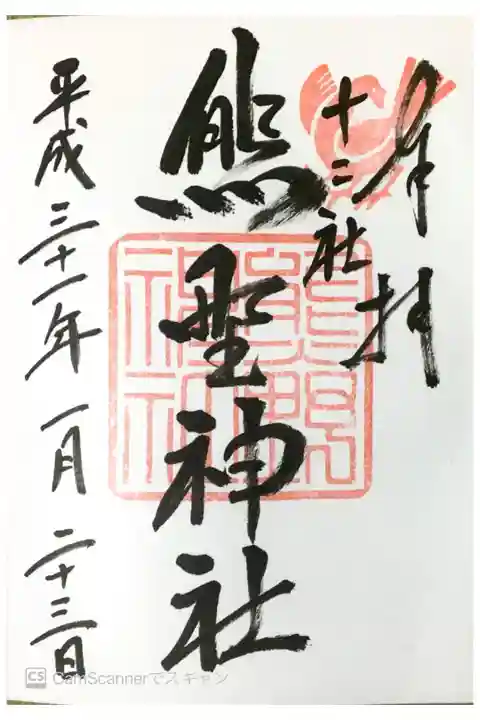 奉拝
十二社
熊野神社
平成三十一年一月二十三日
熊野
神社
CS CamScannerでスキャン